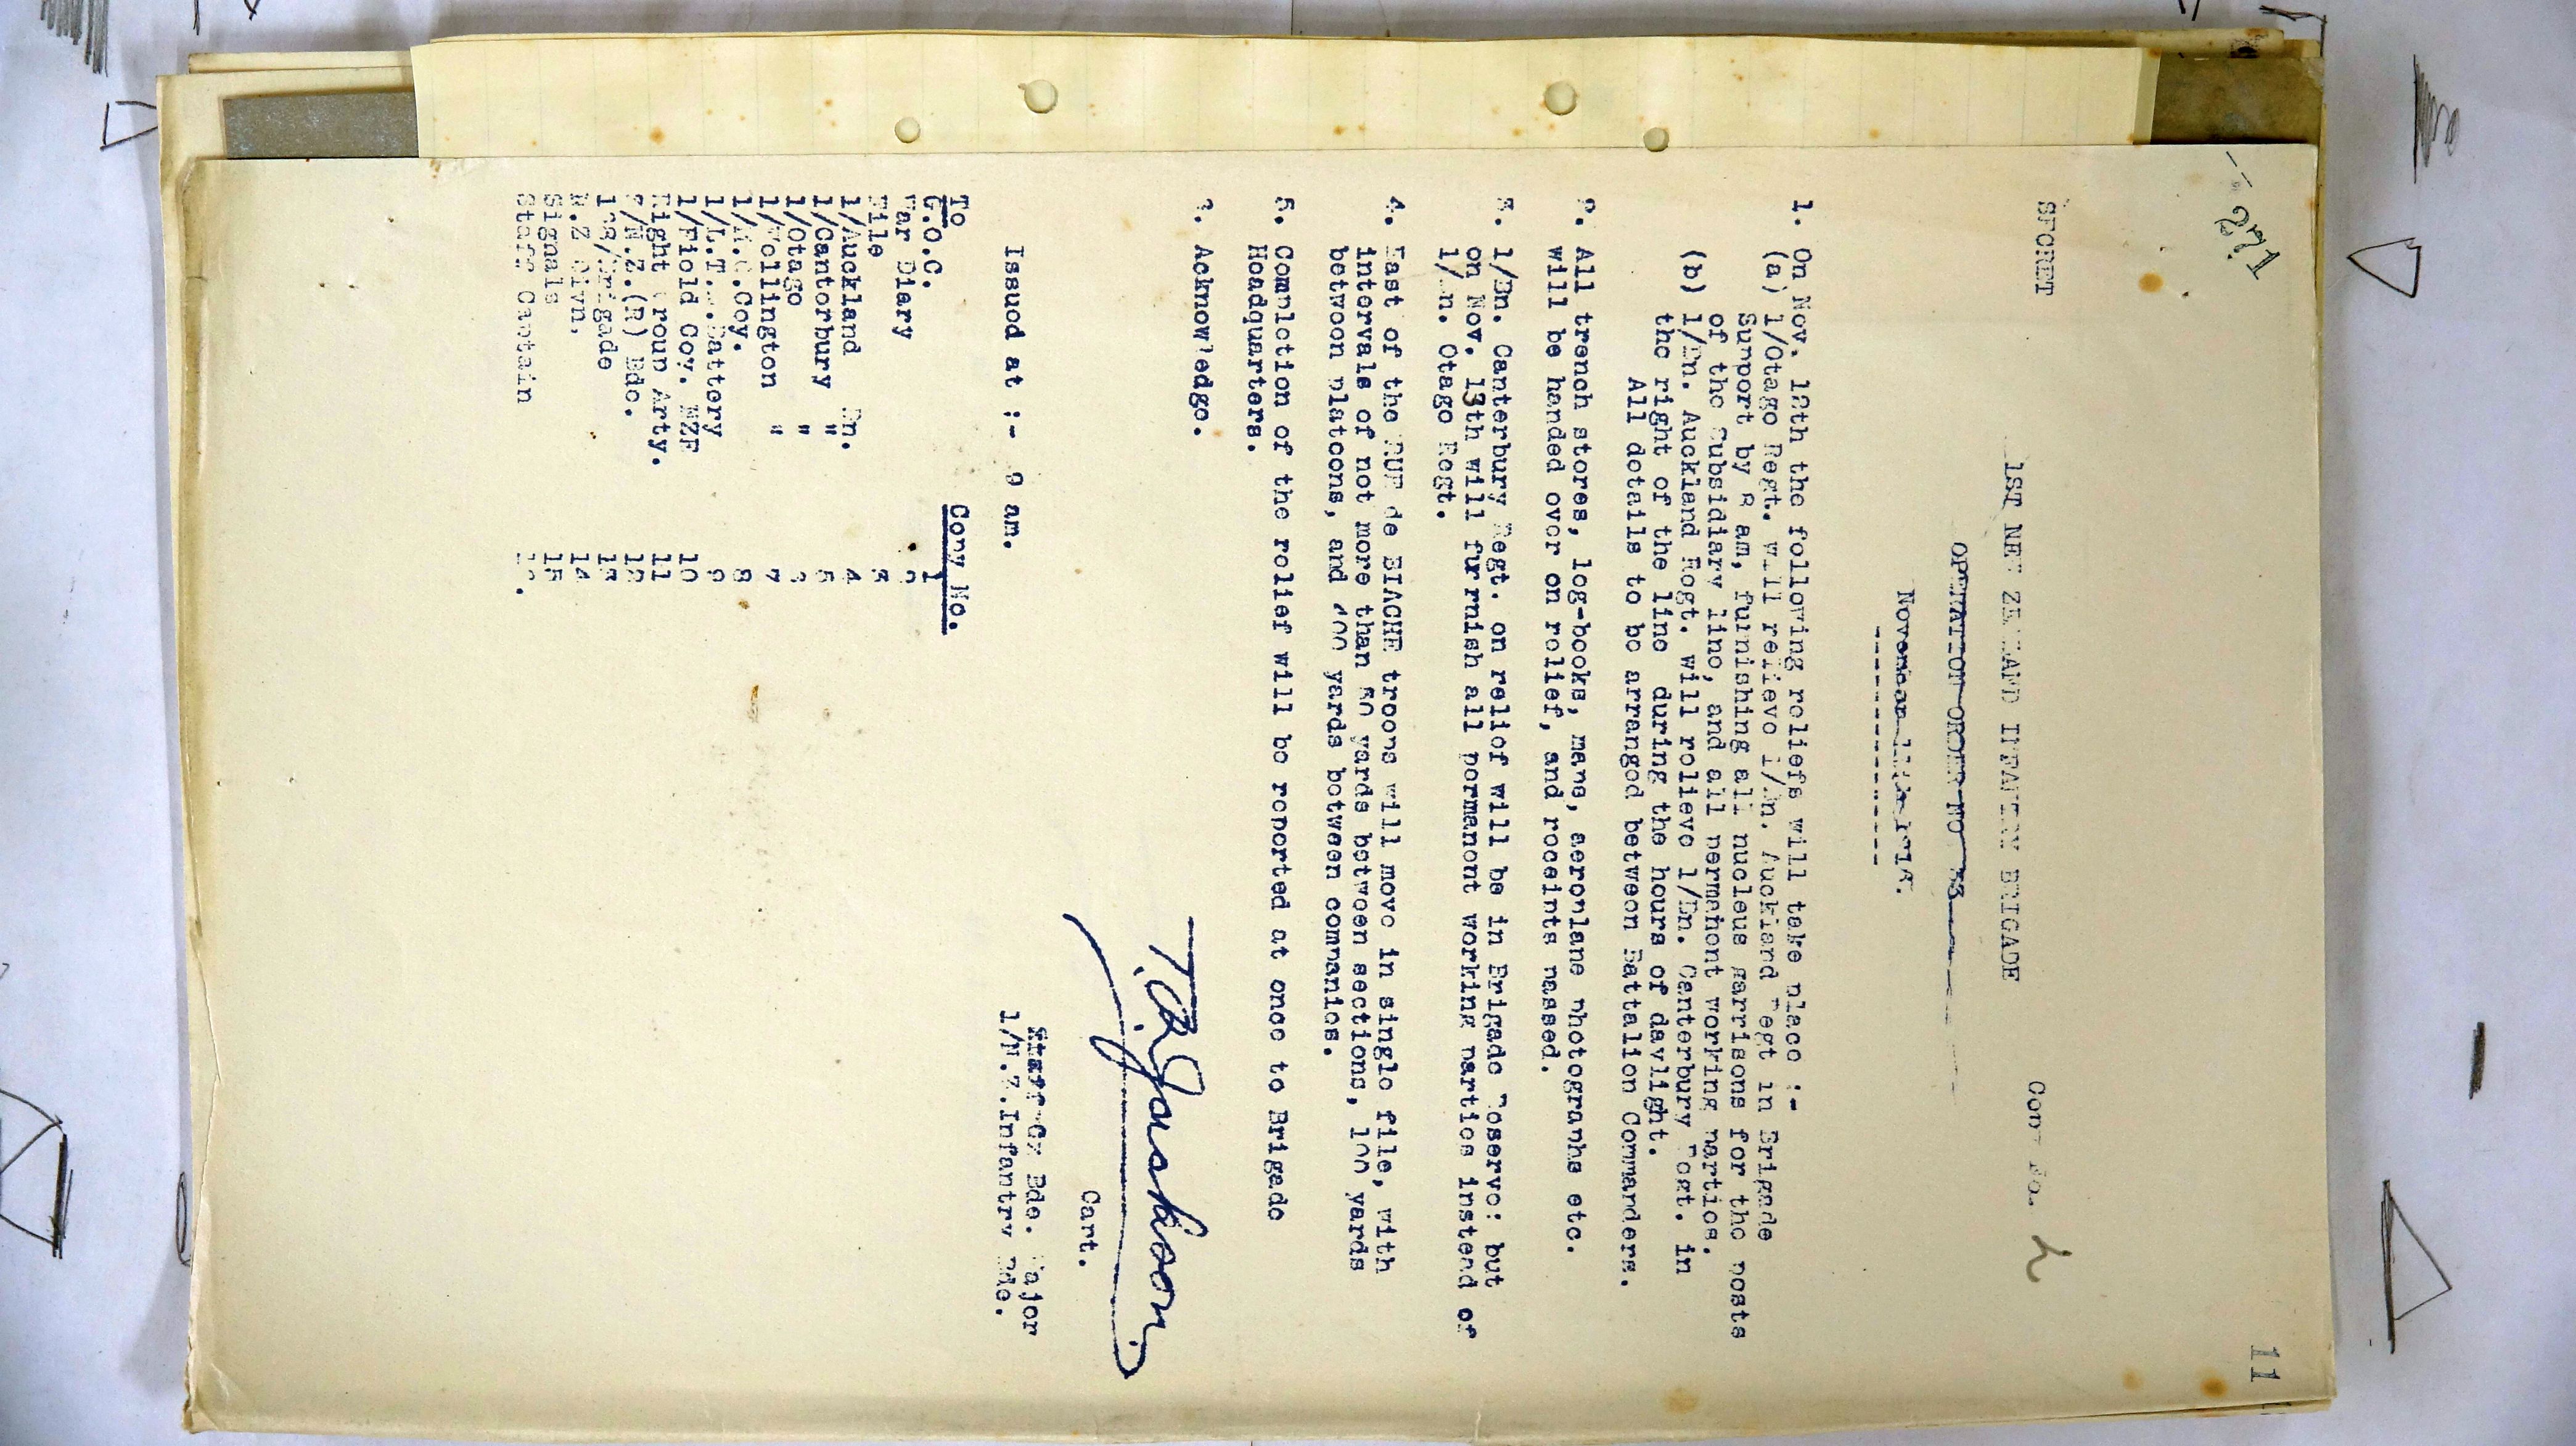 11
SECRET
Copy No. 2
1ST NEW ZEALAND INFANTRY BRIGADE
OPERATION ORDER NO 33
November
1. On Nov. 12th the following reliefs will take place :-
(a) 1/Otago Regt. will relieve 1/Bn. Auckland Regt in Brigade
Support by 8 am, furnishing all nucleus garrisons for the posts
of the Subsidiary line, and all permanent working parties.
(b) 1/Bn. Auckland Regt. will relieve 1/Bn. Canterbury Regt. in
the right of the line during the hours of daylight.
All details to be arranged between Battalion Commanders.
2. All trench stores, log-books, maps, aeroplane photographs etc.
will be handed over on relief, and receipts passed.
3. 1/Bn. Canterbury Regt. on relief will be in Brigade Reserve: but
on Nov. 13th will furnish all permanent working parties instead of
1/Bn. Otago Regt.
4. East of the RUE de BIACHE troops will move in single file, with
intervals of not more than 50 yards between sections, 100 yards
between platoons, and 400 yards between companies.
5. Completion of the relief will be reported at once to Brigade
Headquarters.
Acknowledge.
Capt.
Bde. Major
1/N.Z.Infantry Bde.
Issued at :- 9 am.
To Copy No.
G.O.C. 1
War Diary 2
File 3
1/Auckland Bn. 4
1/Canterbury " 5
1/Otago "
1/Wellington " 7
1/M.G.Coy. 8
1/L.T.M.Battery 9
1/Field Coy. NZE 10
Right Group Arty. 11
3/N.Z.(R) Bde. 12
/Brigade 13
N.Z Divn. 14
Signals 15
Staff Captain